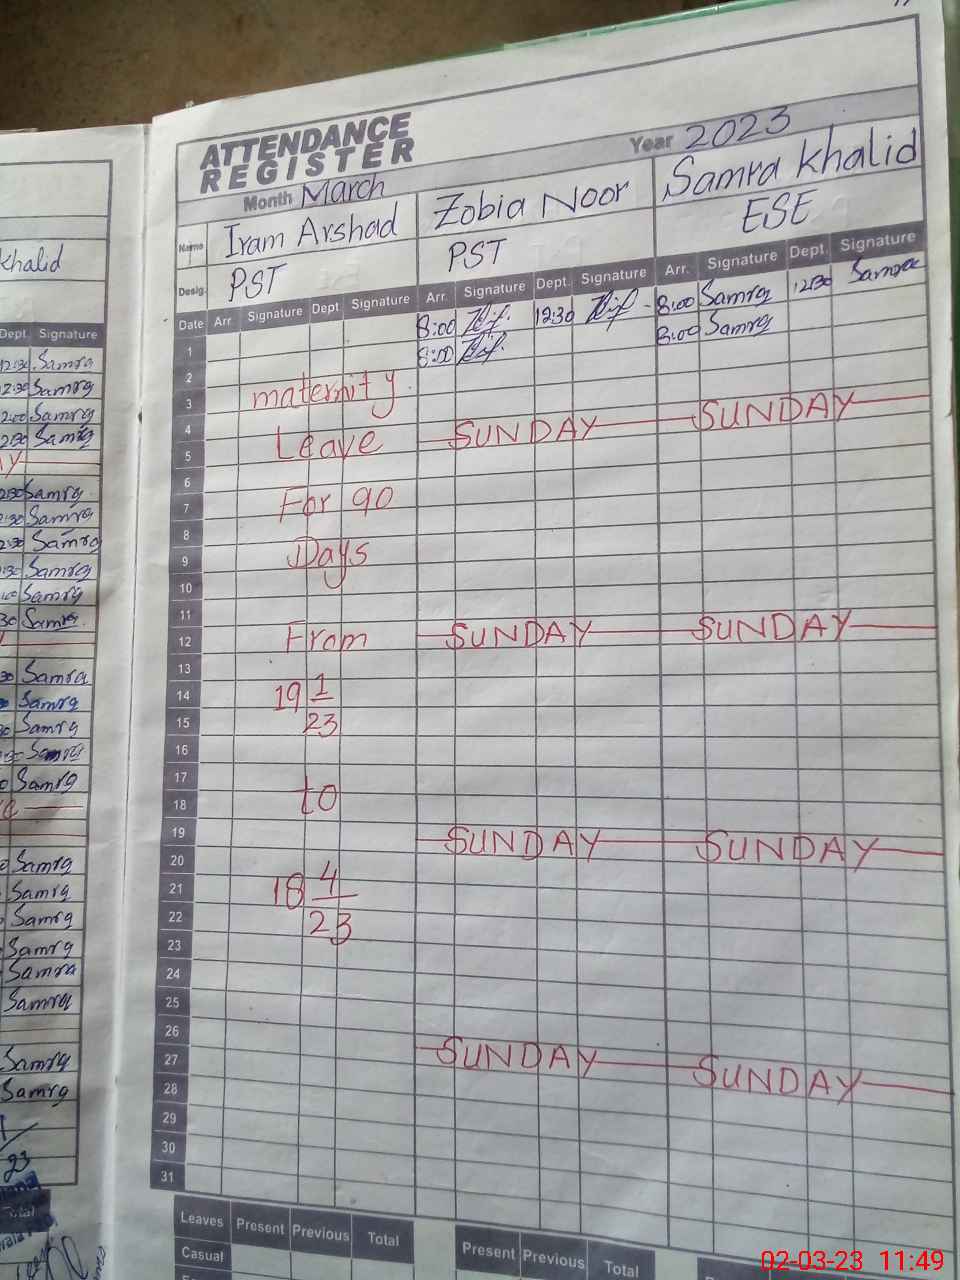 ATTENDANCE
REGISTER
Year 2023
Month March
Name Iram Arshad Zobia Noor Samra Khalid
Desig. PST PST ESE
Date Arr. Signature Dept Signature Arr. Signature Dept. Signature Arr. Signature Dept. Signature
1 8:00 12:30 8:00 Samra 12:30 Samra
2 8:00 8:00 Samra
3 maternity
4 SUNDAY SUNDAY
5 Leave
6
7 For 90
8
9 Days
10
11
12 From SUNDAY SUNDAY
13
14 19 1
15 23
16
17
18 to
19 SUNDAY SUNDAY
20
21 18 4
22 23
23
24
25
26 SUNDAY SUNDAY
27
28
29
30
31
Leaves Present Previous Total Present Previous Total
Casual
khalid
Dept. Signature
12:30 Samra
2:30 Samra
2:00 Samra
2:30 Samra
Y
2:30 Samra
2:30 Samra
2:30 Samra
:30 Samra
Samra
30 Samra
30 Samra
Samra
Samra
Samra
Samra
Samra
Samra
Samra
Samra
Samra
Samra
Samra
Samra
23
Total
02-03-23 11:49